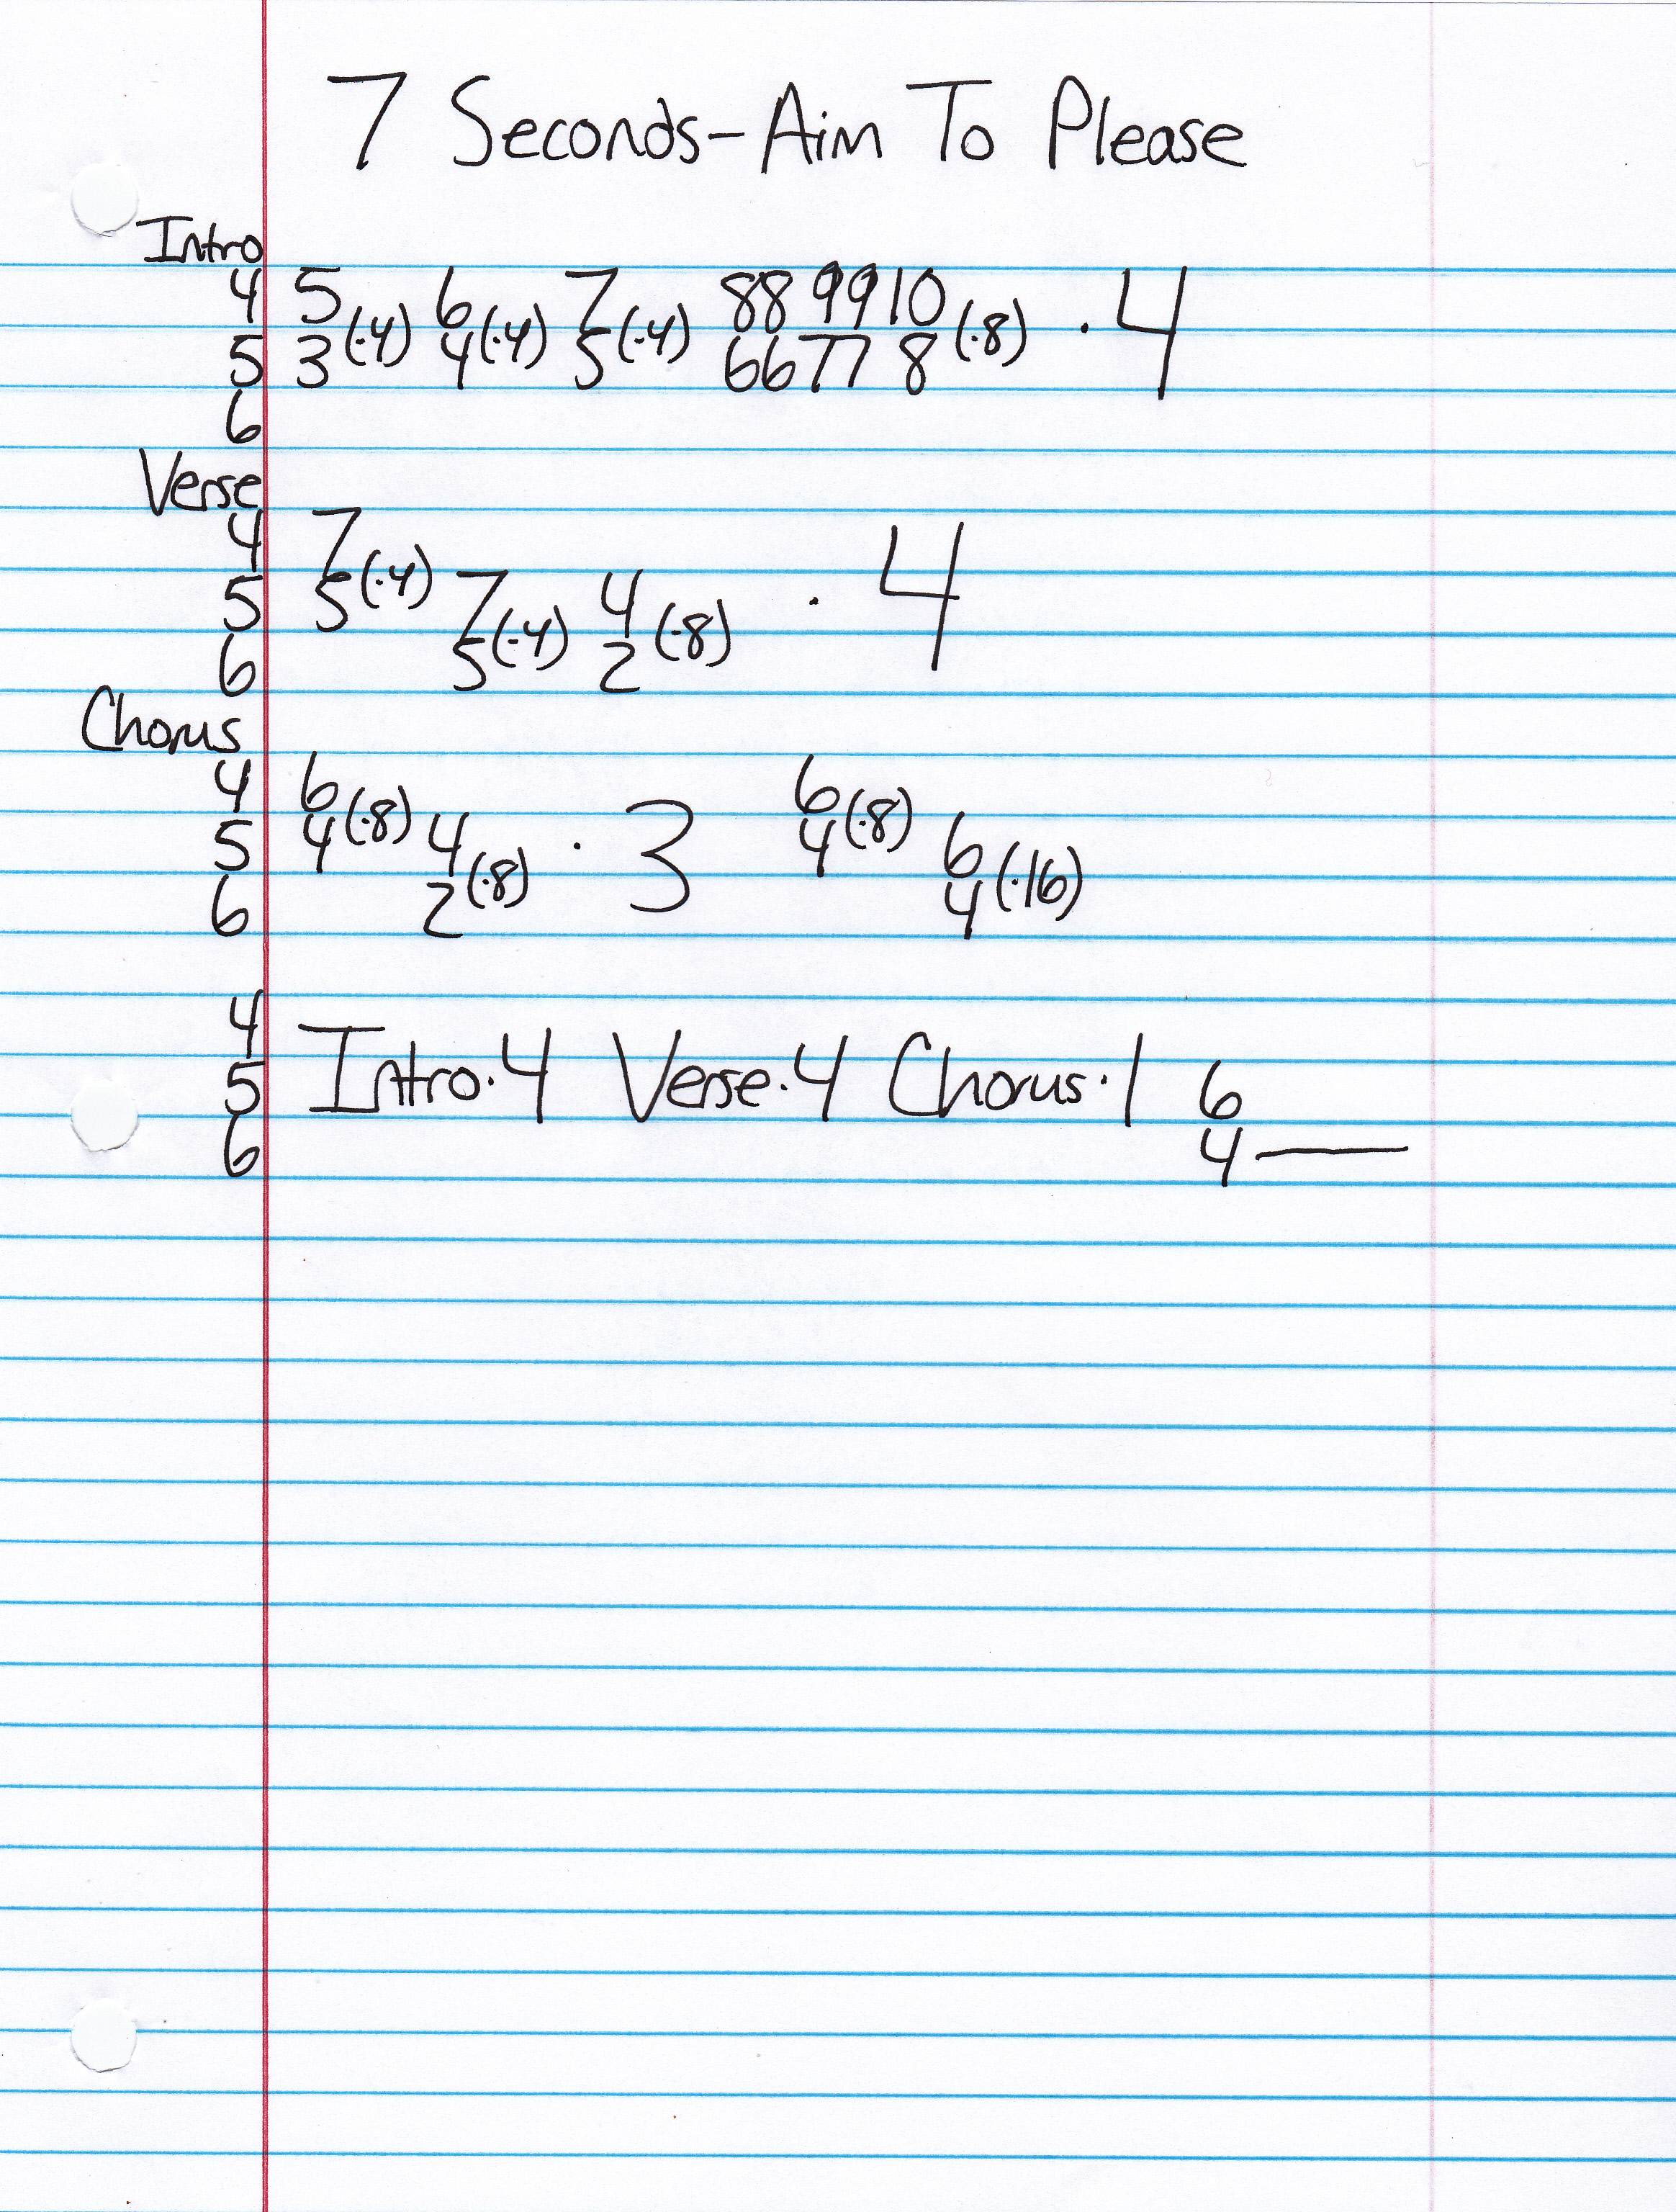 7 Seconds-Aim To Please
Intro
4 5 (·4) 6 (·4) 7 (·4) 8 8 9 9 10 (·8) · 4
5 3 4 5 6 6 7 7 8
6
Verse
4 7 (·4) · 4
5 5 7 (·4) 4 (·8)
6 5 2
Chorus
4 6 (·8) · 3 6 (·8)
5 4 4 (·8) 4 6 (·16)
6 2 4
4
5 Intro·4 Verse·4 Chorus·1 6
6 4—